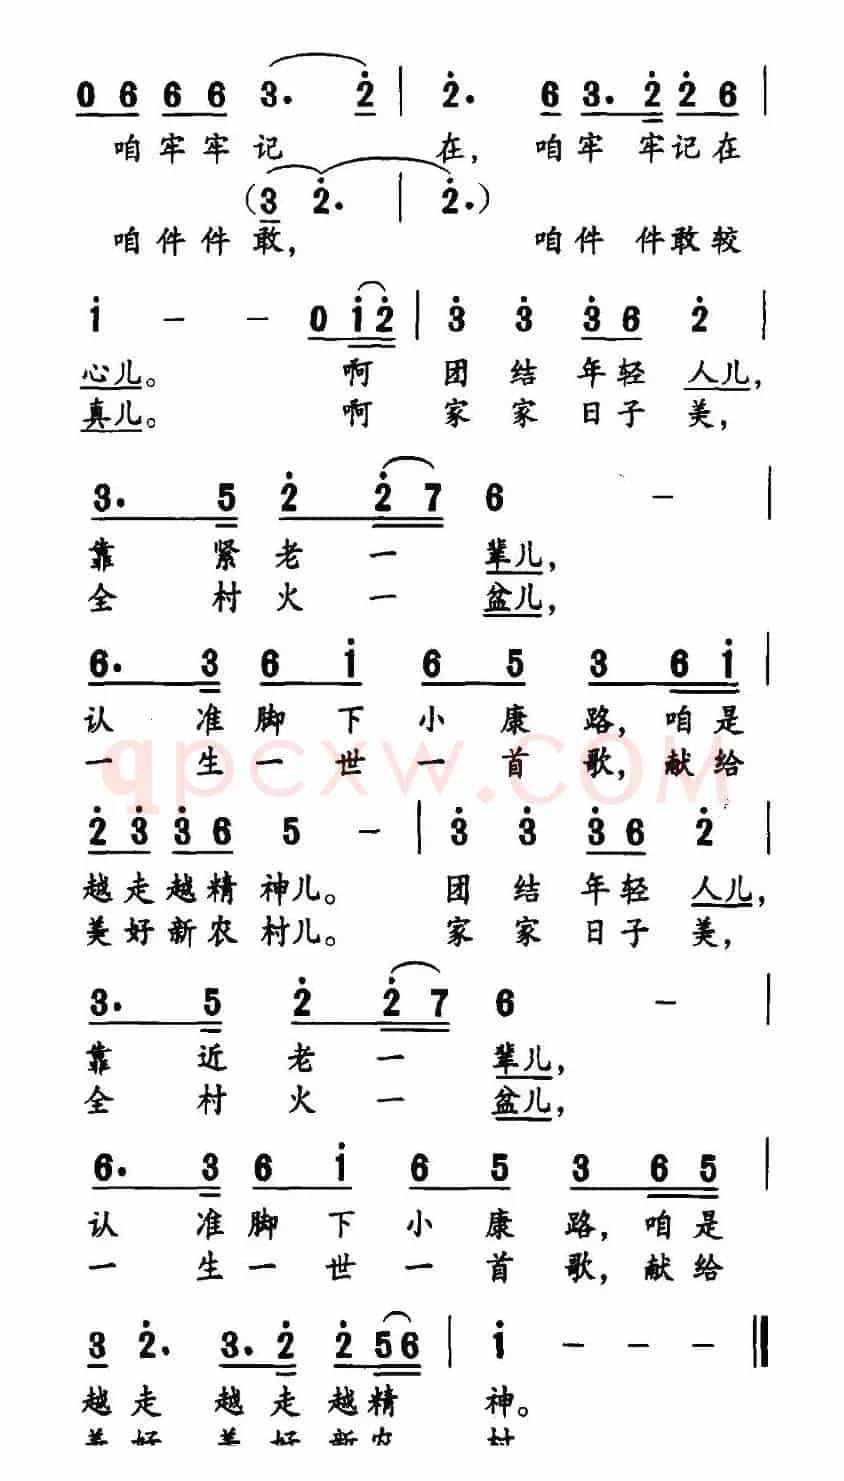 0 6 6 6 3. 2̇ | 2̇. 6 3. 2̇ 2̇ 6 |
咱牢牢记 在， 咱牢 牢记在
(3 2̇. | 2̇.)
咱件件敢， 咱件 件敢较
1̇ － － 0 1̇ 2̇ | 3̇ 3̇ 3̇ 6 2̇ |
心儿。 啊 团 结 年轻 人儿，
真儿。 啊 家 家 日子 美，
3. 5 2̇ 2̇ 7 6 － |
靠 紧 老 一 辈儿，
全 村 火 一 盆儿，
6. 3 6 1̇ 6 5 3 6 1̇ |
认 准 脚 下 小 康 路，咱是
一 生 一 世 一 首 歌，献给
qpcxw.COM
2̇ 3̇ 3̇ 6 5 － | 3̇ 3̇ 3̇ 6 2̇ |
越走越精 神儿。 团 结 年轻 人儿，
美好新农 村儿。 家 家 日子 美，
3. 5 2̇ 2̇ 7 6 － |
靠 近 老 一 辈儿，
全 村 火 一 盆儿，
6. 3 6 1̇ 6 5 3 6 5 |
认 准 脚 下 小 康 路，咱是
一 生 一 世 一 首 歌，献给
3 2̇. 3. 2̇ 2̇ 5 6 | 1̇ － － － ‖
越走 越 走 越精 神。
美好 美 好 新农 村